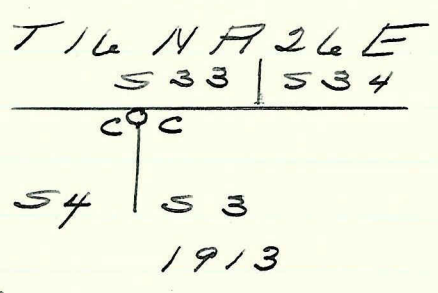 T 16 N R 26 E
S 33 | S 34
C C
S4 | S 3
1913